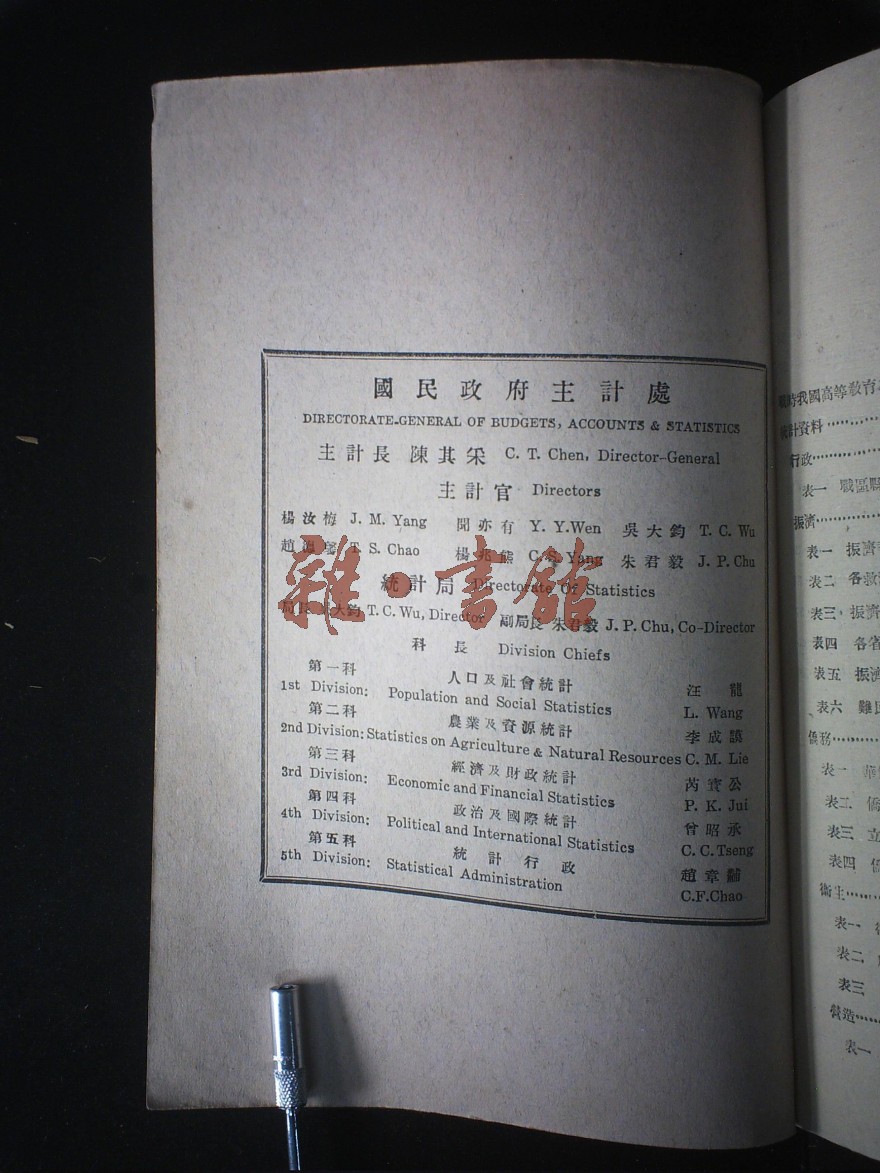 國民政府主計處
DIRECTORATE-GENERAL OF BUDGETS, ACCOUNTS & STATISTICS
主計長 陳其采 C. T. Chen, Director-General
主計官 Directors
楊汝梅 J. M. Yang 聞亦有 Y. Y. Wen 吳大鈞 T. C. Wu
趙 T. S. Chao 楊兆熊 C. S. Yang 朱君毅 J. P. Chu
雜·書館
統計局 Directorate Of Statistics
局長 吳大鈞 T. C. Wu, Director 副局長 朱君毅 J. P. Chu, Co-Director
科長 Division Chiefs
第一科 人口及社會統計 汪龍
1st Division: Population and Social Statistics L. Wang
第二科 農業及資源統計 李成謨
2nd Division: Statistics on Agriculture & Natural Resources C. M. Lie
第三科 經濟及財政統計 芮寶公
3rd Division: Economic and Financial Statistics P. K. Jui
第四科 政治及國際統計 曾昭承
4th Division: Political and International Statistics C. C. Tseng
第五科 統計行政 趙章黼
5th Division: Statistical Administration C.F.Chao
戰時我國高等教育
統計資料
行政
表一 戰區縣
振濟
表一 振濟
表二 各救
表三 振濟
表四 各省
表五 振濟
表六 難民
僑務
表一 華
表二 僑
表三 立
表四 僑
衛生
表一
表二
表三
營造
表一